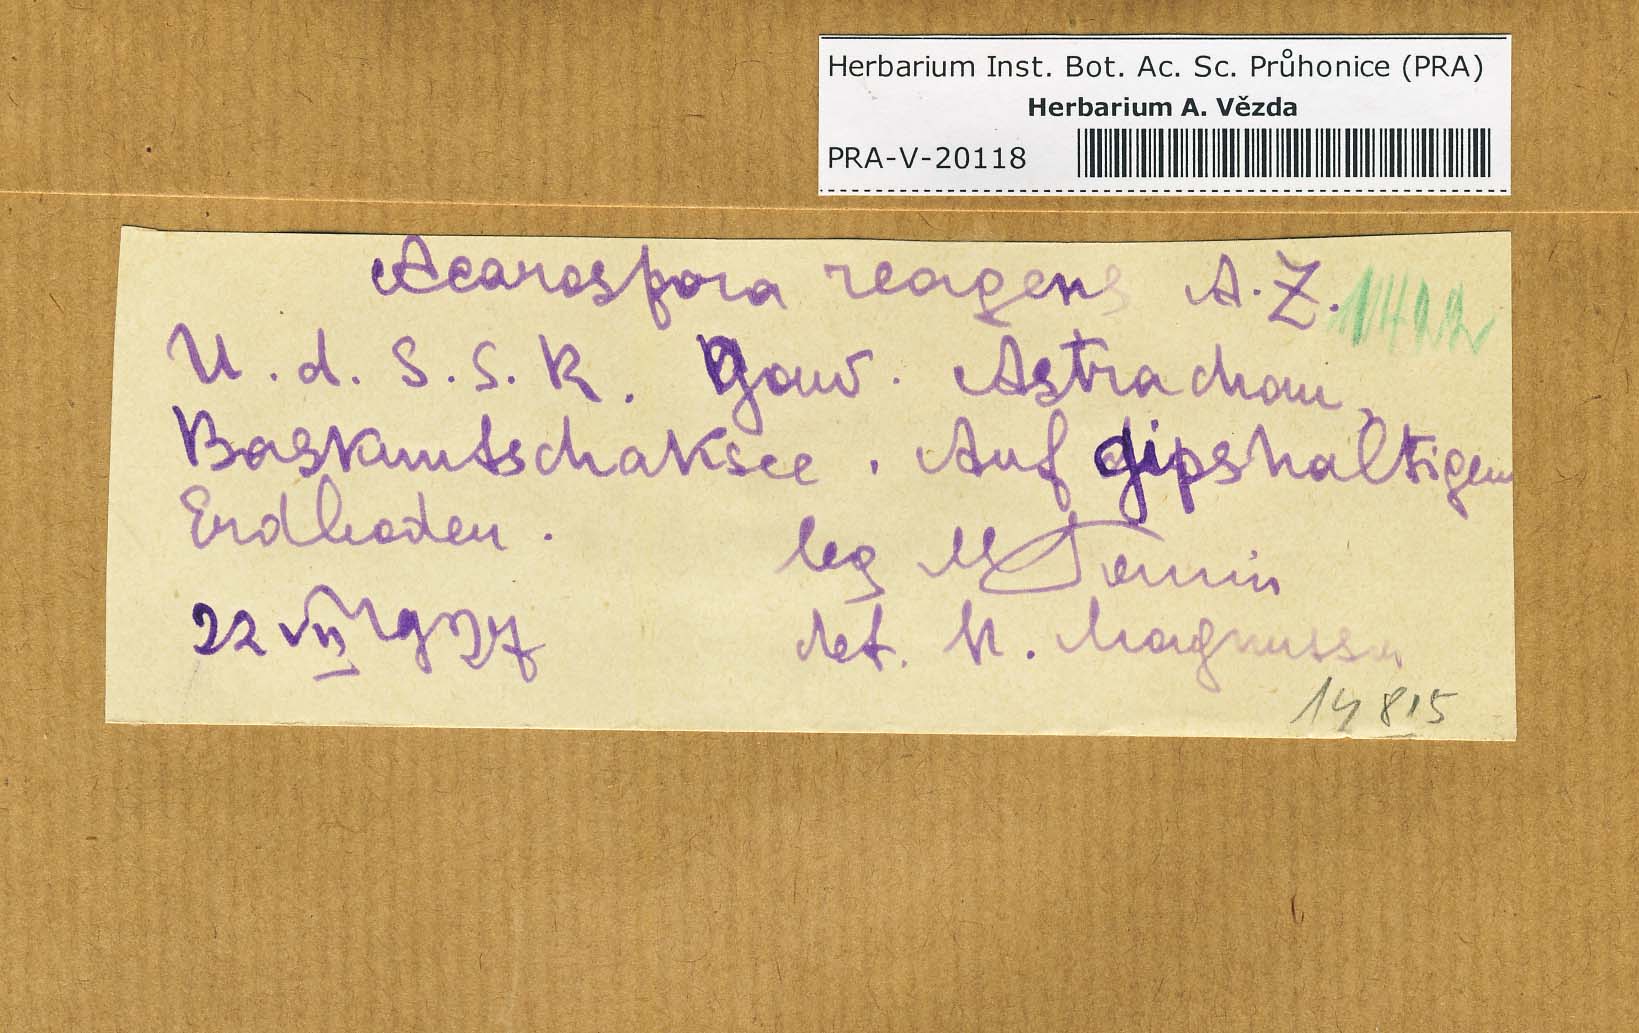 Herbarium Inst. Bot. Ac. Sc. Průhonice (PRA)
Herbarium A. Vězda
PRA-V-20118
Acarospora reagens A.Z.
U. d. S. S. R. Gouv. Astrachan,
Baskuntschaksee. Auf gipshaltigem
Erdboden.
leg M Tomin
22 VII 1927
det. H. Magnusson
14815